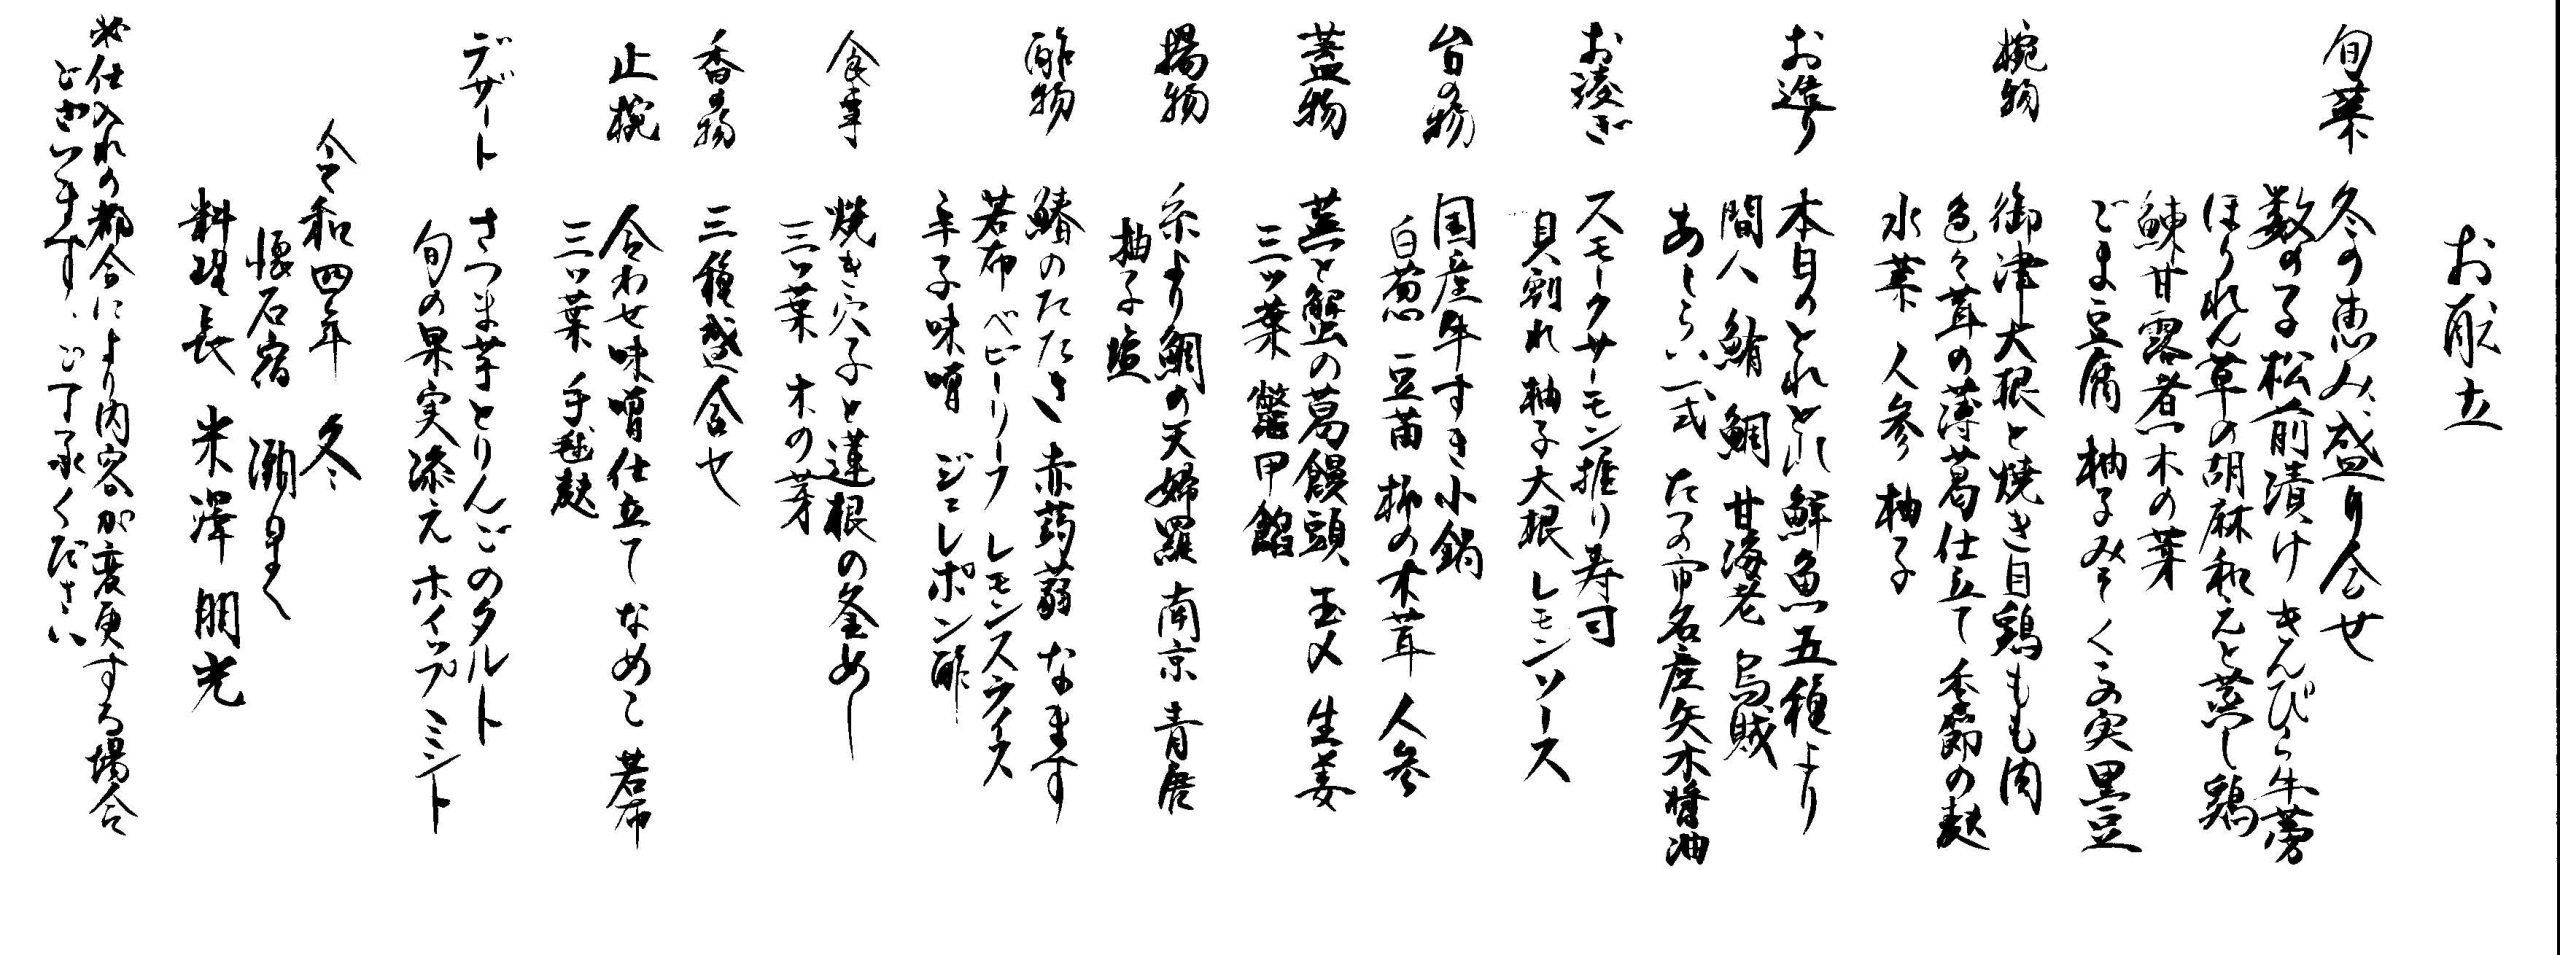 お献立
旬菜 冬の恵み盛り合せ
数の子松前漬け きんぴら牛蒡
ほうれん草の胡麻和えと蒸し鶏
鰊甘露煮 木の芽
ごま豆腐 柚子みそ くこの実 黒豆
椀物 御津大根と焼き目鶏もも肉
色々茸の薄葛仕立て 季節の麩
水菜 人参 柚子
お造り 本日のとれとれ鮮魚五種より
間人 鮪 鯛 甘海老 烏賊
あしらい一式 たつの市名産矢木醤油
お凌ぎ スモークサーモン握り寿司
貝割れ 柚子大根 レモンソース
台の物 国産牛すき小鍋
白葱 豆苗 柳の木茸 人参
蓋物 蕪と蟹の葛饅頭 玉〆 生姜
三ツ葉 鼈甲餡
揚物 糸より鯛の天婦羅 南京 青唐
柚子塩
酢物 鰆のたたき 赤蒟蒻 なます
若布 ベビーリーフ レモンスライス
辛子味噌 ジュレポン酢
食事 焼き穴子と蓮根の釜めし
三ツ葉 木の芽
香の物 三種盛合せ
止椀 合わせ味噌仕立て なめこ 若布
三ツ葉 手毬麩
デザート さつま芋とりんごのタルト
旬の果実添え ホイップ ミント
令和四年 冬
懐石宿 潮里
料理長 米澤 朋光
※仕入れの都合により内容が変更する場合
ございます、ご了承ください